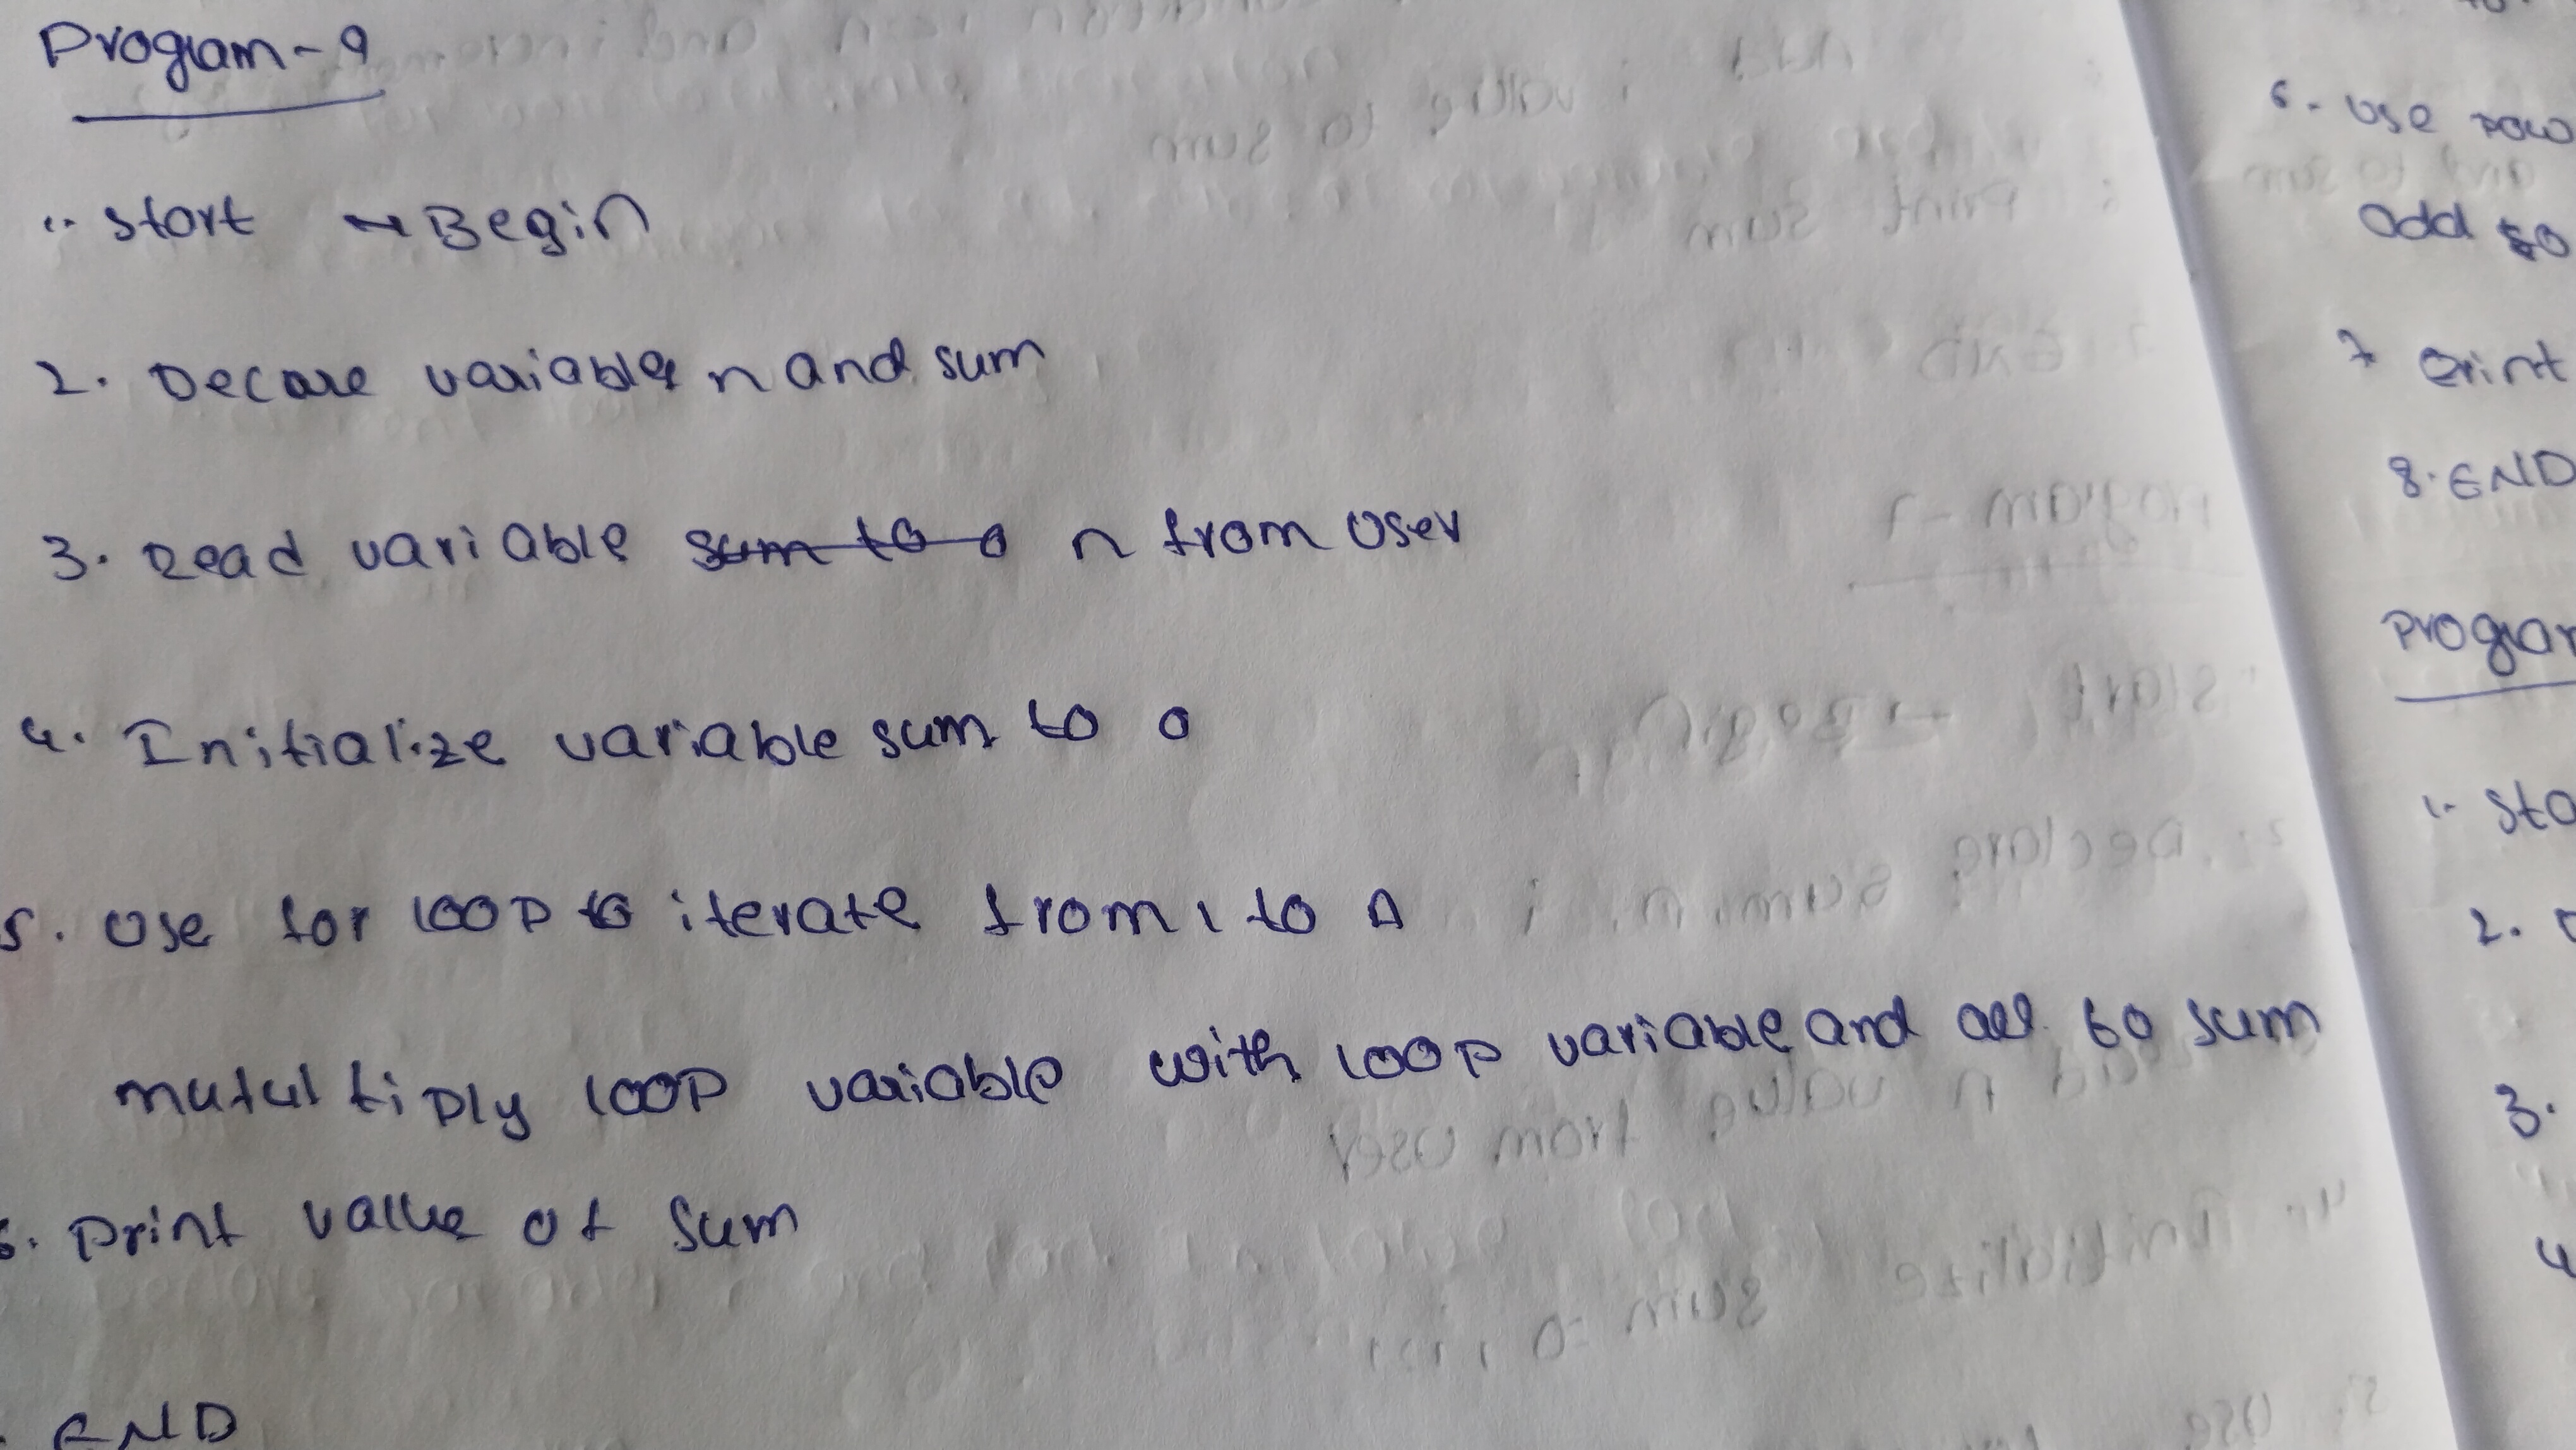 Program-9
1. Start → Begin
2. Decare variables n and sum
3. Read variable sum to 0 n from user
4. Initialize variable sum to 0
5. Use for loop to iterate from 1 to n
mutultiply loop variable with loop variable and ad to sum
6. Print value of sum
END
6. Use pow
add to
7 Print
8. END
Program
1. Sta
2.
3.
4